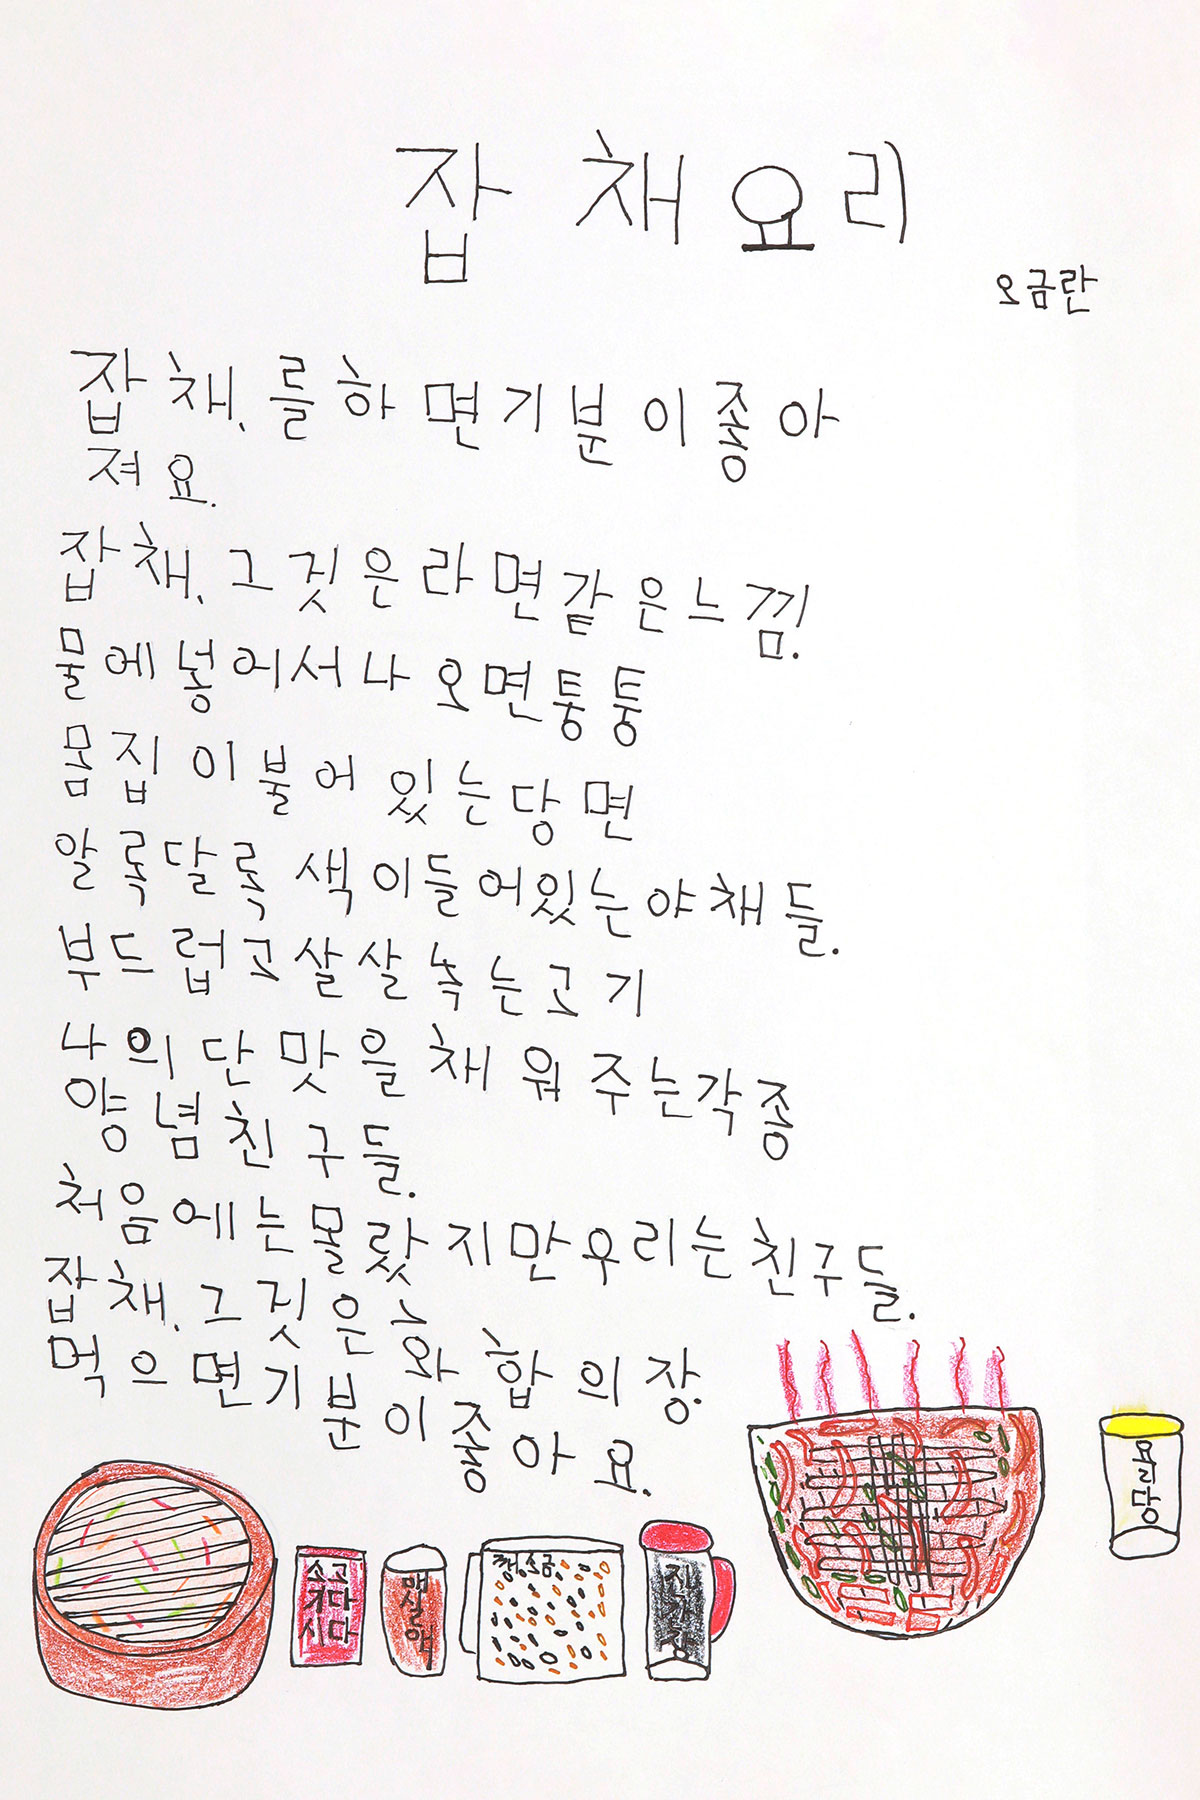 잡채요리
오금란
잡채, 를 하면 기분이 좋아
져요.
잡채, 그것은 라면 같은 느낌.
물에 넣어서 나오면 퉁퉁
몸집이 불어 있는 당면
알록달록 색이 들어있는 야채들.
부드럽고 살살 녹는 고기
나의 단맛을 채워 주는 각종
양념 친구들.
처음에는 몰랐지만 우리는 친구들.
잡채, 그것은 화합의 장.
먹으면 기분이 좋아요.
소고기다시다
매실액
깨소금
진간장